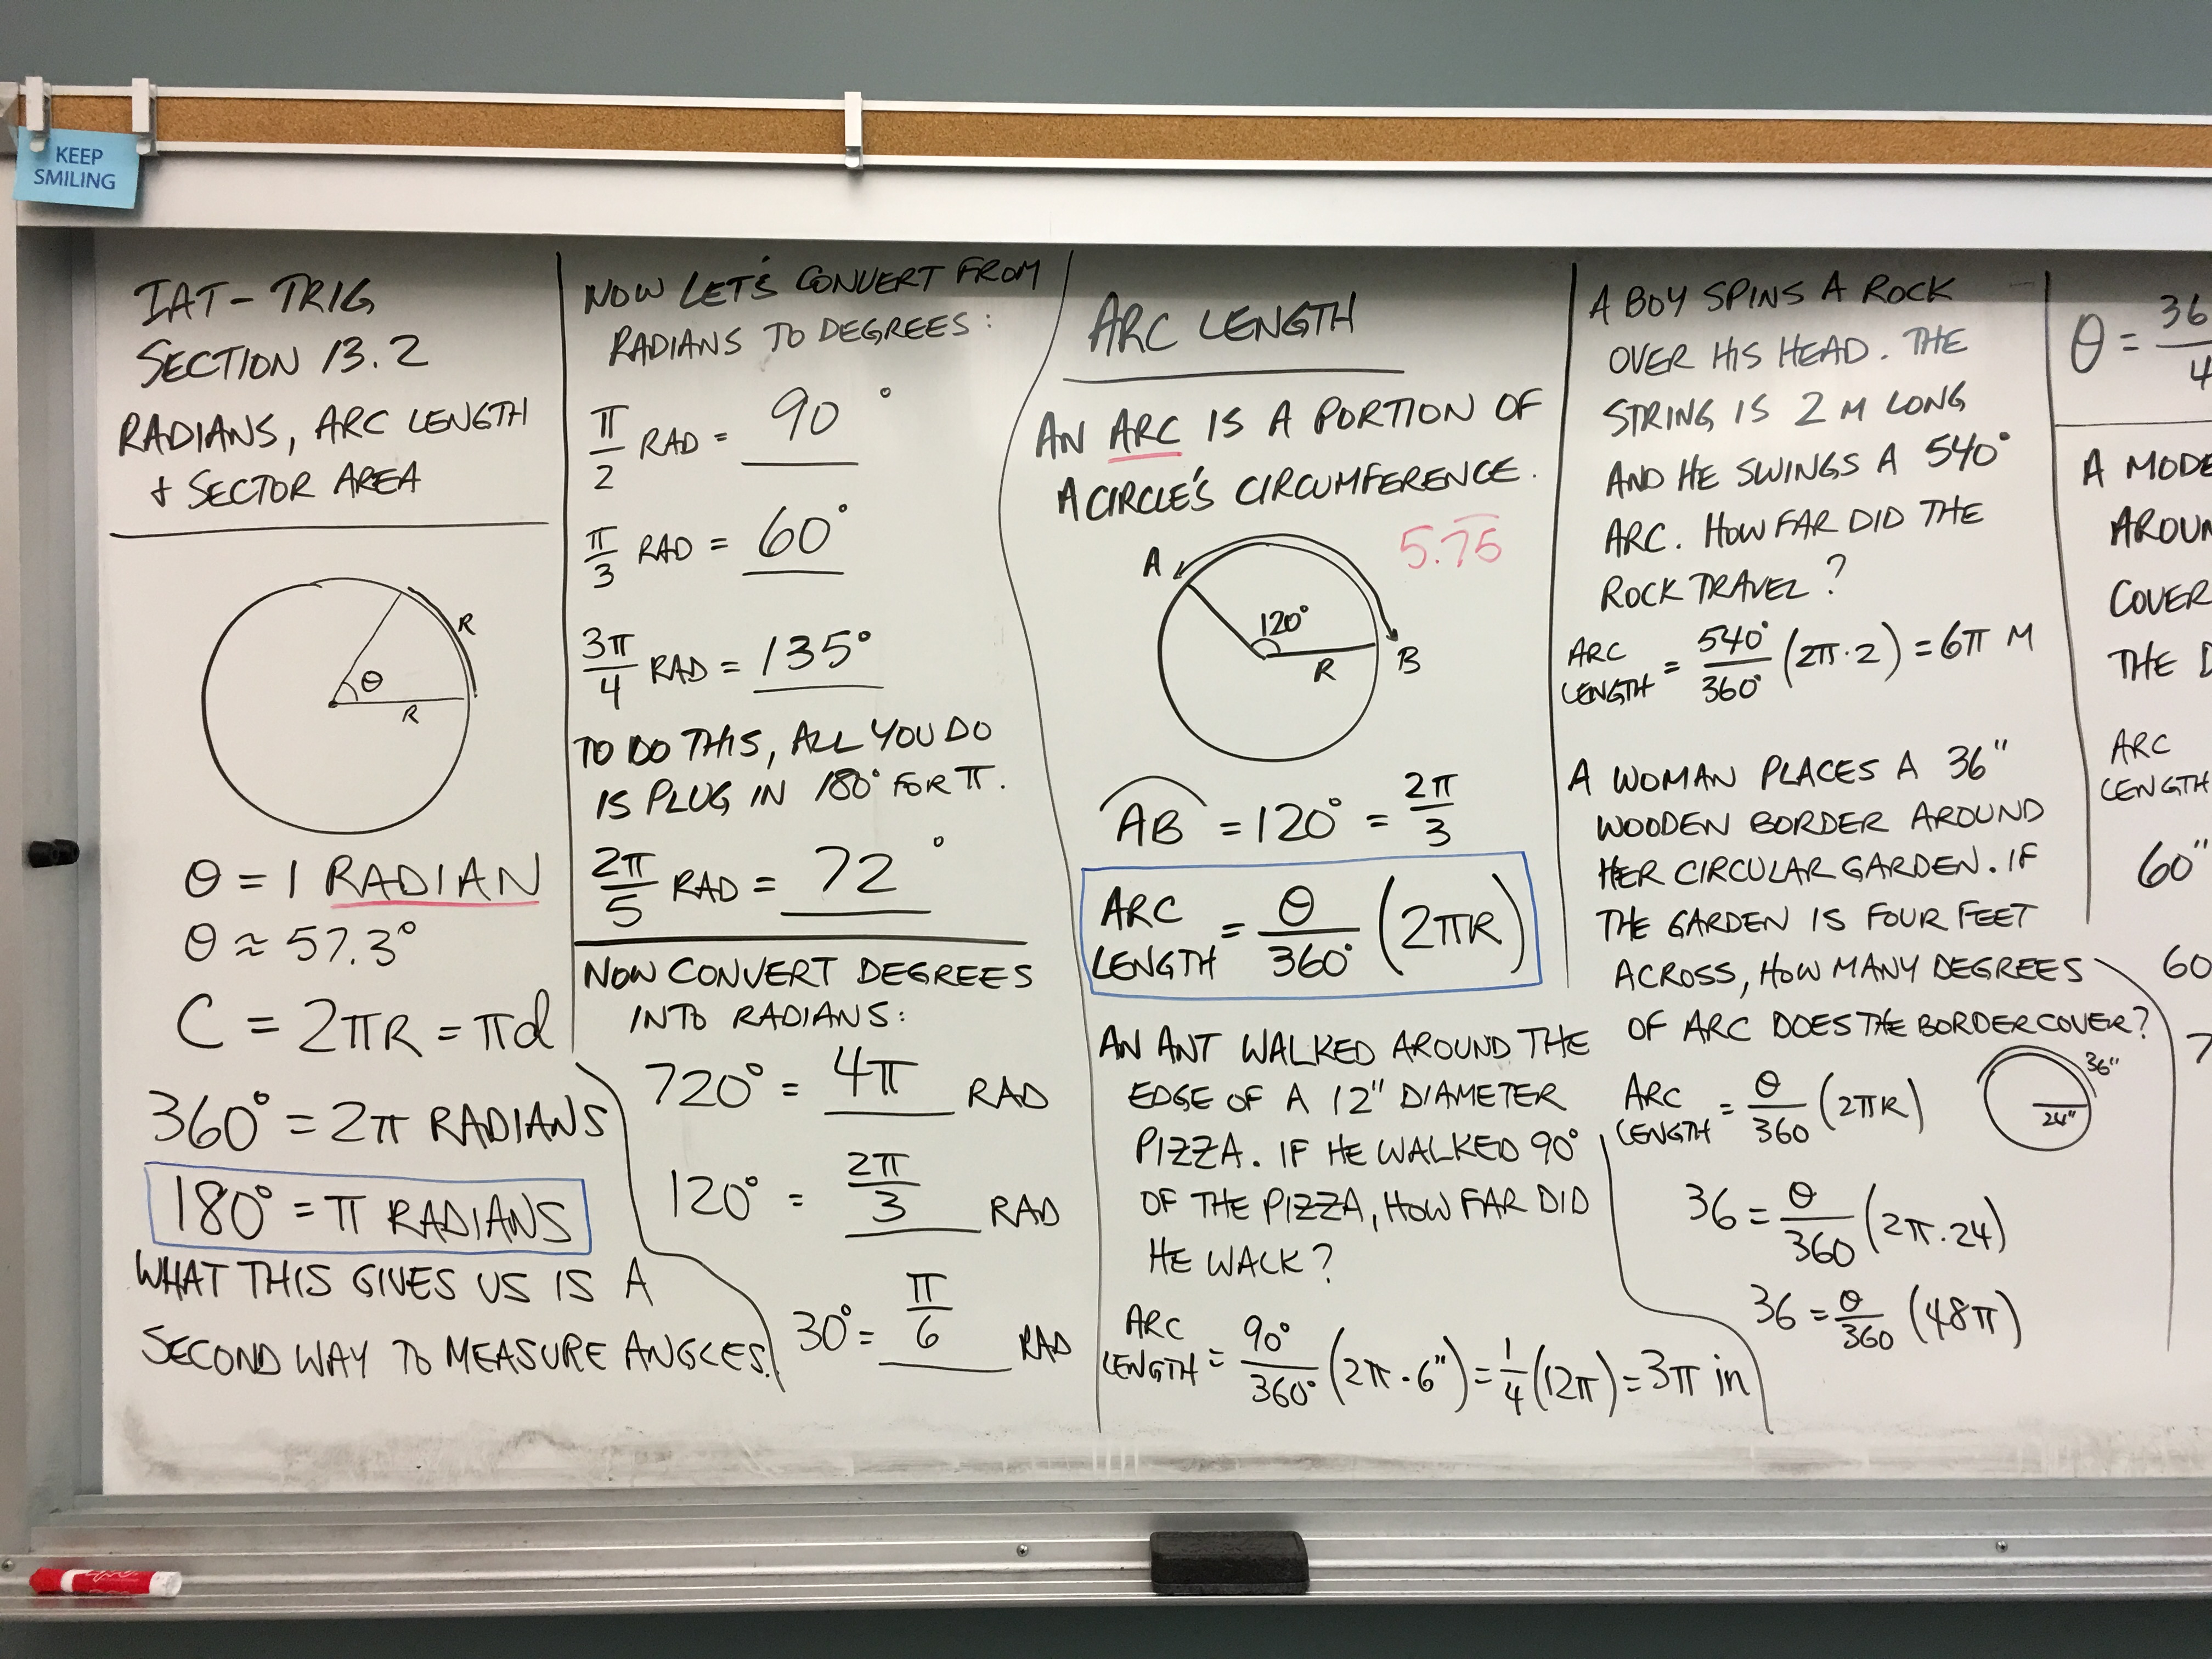 KEEP
SMILING
IAT - TRIG
SECTION 13.2
RADIANS, ARC LENGTH
+ SECTOR AREA
R
θ
R
θ = 1 RADIAN
θ ≈ 57.3°
C = 2πR = πd
360° = 2π RADIANS
180° = π RADIANS
WHAT THIS GIVES US IS A
SECOND WAY TO MEASURE ANGLES.
NOW LET'S CONVERT FROM
RADIANS TO DEGREES:
π/2 RAD = 90°
π/3 RAD = 60°
3π/4 RAD = 135°
TO DO THIS, ALL YOU DO
IS PLUG IN 180° FOR π.
2π/5 RAD = 72°
NOW CONVERT DEGREES
INTO RADIANS:
720° = 4π RAD
120° = 2π/3 RAD
30° = π/6 RAD
ARC LENGTH
AN ARC IS A PORTION OF
A CIRCLE'S CIRCUMFERENCE.
5.75
A
120°
R
B
AB = 120° = 2π/3
ARC LENGTH = θ/360° (2πR)
AN ANT WALKED AROUND THE
EDGE OF A 12" DIAMETER
PIZZA. IF HE WALKED 90°
OF THE PIZZA, HOW FAR DID
HE WALK?
ARC LENGTH = 90°/360° (2π·6") = 1/4 (12π) = 3π in
A BOY SPINS A ROCK
OVER HIS HEAD. THE
STRING IS 2 M LONG
AND HE SWINGS A 540°
ARC. HOW FAR DID THE
ROCK TRAVEL?
ARC LENGTH = 540°/360° (2π·2) = 6π M
A WOMAN PLACES A 36"
WOODEN BORDER AROUND
HER CIRCULAR GARDEN. IF
THE GARDEN IS FOUR FEET
ACROSS, HOW MANY DEGREES
OF ARC DOES THE BORDER COVER?
ARC LENGTH = θ/360 (2πR)
36"
24"
36 = θ/360 (2π·24)
36 = θ/360 (48π)
θ = 36
4
A MODE
AROUN
COVER
THE
ARC
LENGTH
60"
60
7